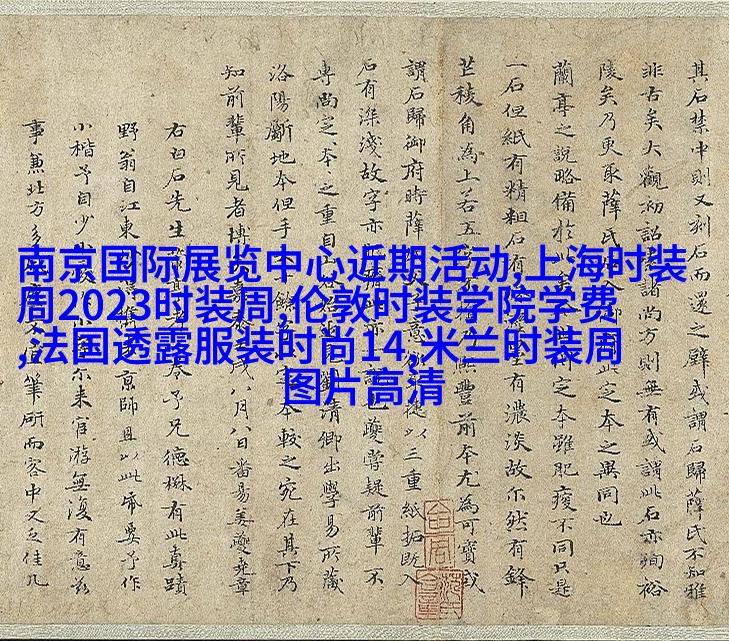 南京国际展览中心近期活动,上海时装
周2023时装周,伦敦时装学院学费
,法国透露服装时尚14,米兰时装周
图片高清
其石禁中則又刻石而還之壁或謂石歸薛氏不知雅
非古矣大觀初詔諸尚方則無有或謂此石亦殉裕
陵矣乃更取薛氏定本之異同也
蘭亭之說略備於定本雖肥瘦不同只是
一石但紙有精粗石有有濃淡故尔然有鋒
芒稜角為上若五豐前本尤為可寶我
謂石歸御府時薛徒以三重紙搨既入
石有深淺故字亦瘦嘗疑前輩不
專尚定本之重自清卿出學易所藏
洛陽斷地本但手本較之宛在其下乃
知前輩所見者博戊八月八日番昜姜夔堯章
右白石先生予兄德楙有此真蹟
野翁自江東京師且以此帋予作
小楷予自少尔来官游無復有意茲
事兼北方多筆研而客中又乏佳几